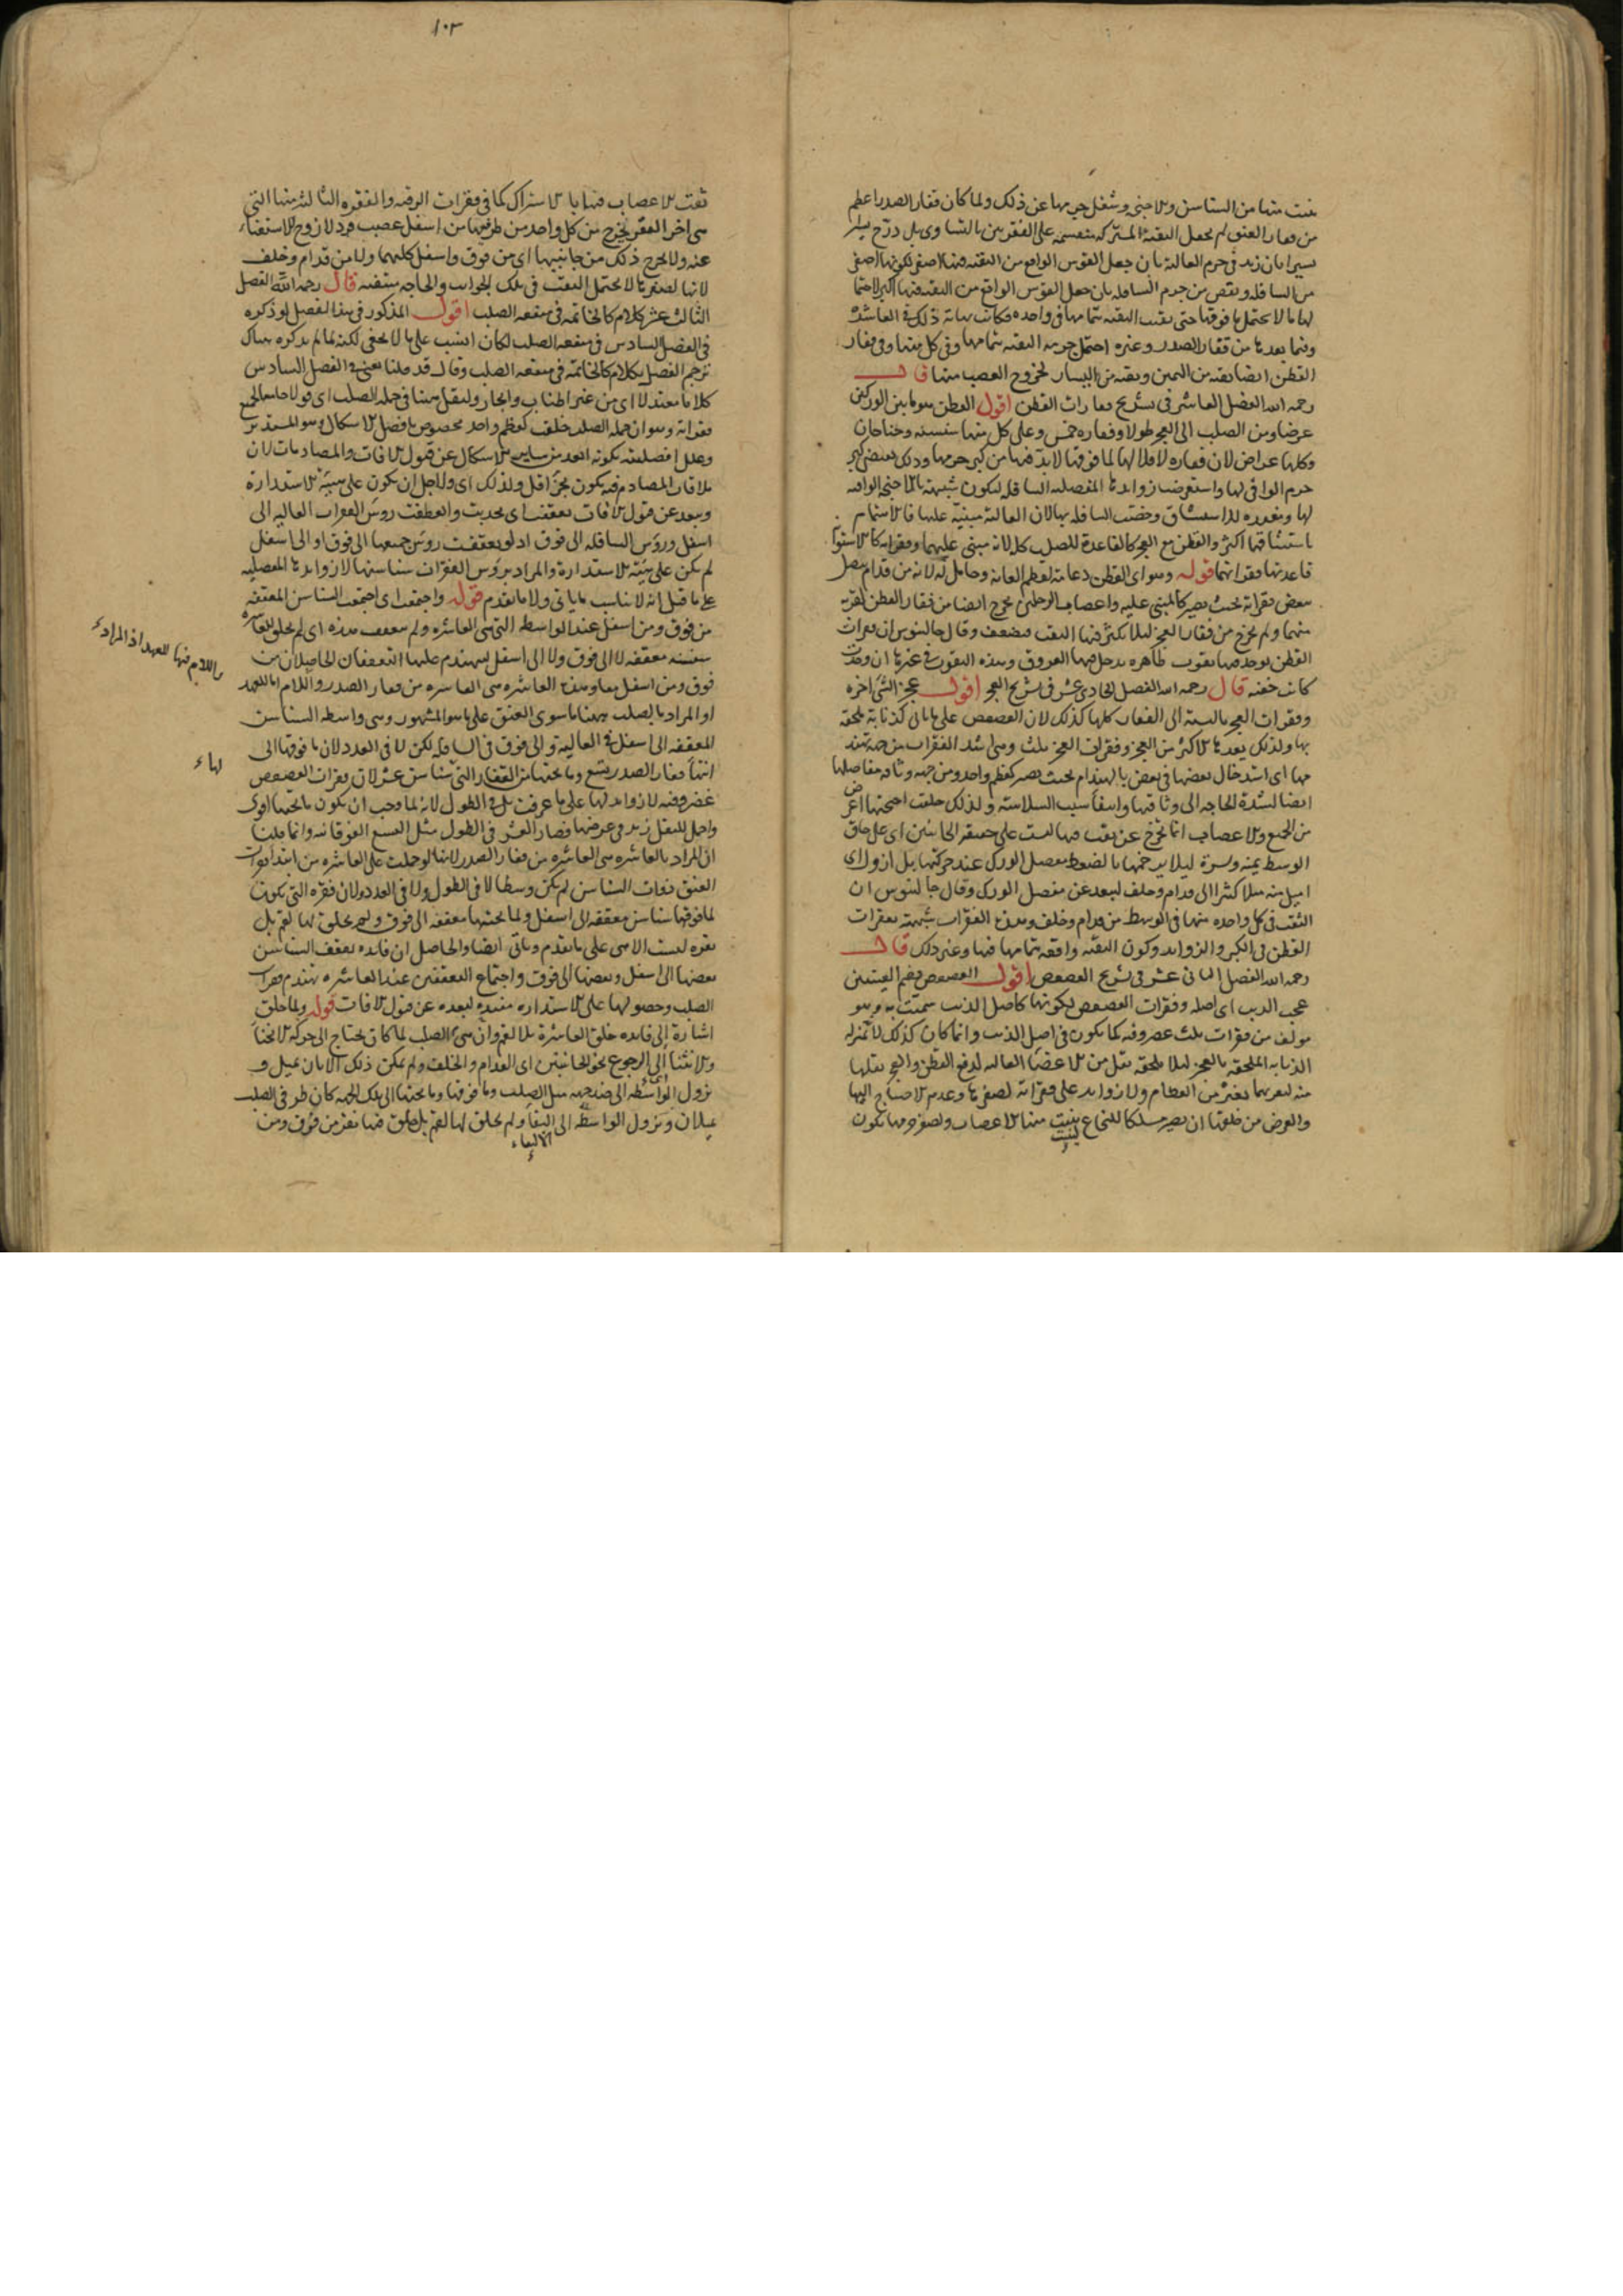 من السناسن والاجنحة وشغل جرمها عن ذلك ولما كان فقار الصدر اعظم
من فقار العنق لم يجعل الثقبة المشتركة منقسمة على الفقرتين بالتساوى بل درج يسيرا
يسيرا بان زيد فى جرم العالية بان جعل القوس الواقع من الثقبة فيها اصغر لكونها اصغر
من السافلة ونقص من جرم السافلة بان جعل القوس الواقع من الثقبة فيها اكبر
لها ما لا يحتمل ما فوقها حتى بقيت الثقبة بتمامها فى واحدة وكانت نهاية ذلك فى العاشرة
وفيما بعدها من فقار الصدر وغيره احتمل جرمه الثقبة بتمامها وفى كل منها وفى فقار
القطن ايضا ثقبة من اليمين وثقبة من اليسار لخروج العصب منها قال
رحمه الله الفصل العاشر فى تشريح فقارات القطن اقول القطن هو ما بين الوركين
عرضا ومن الصلب الى العجز طولا وفقاره خمس وعلى كل منها سنسنة وجناحان
وكلها عراض لان فقاره لاقلالها لما فوقها لابد فيها من كبر جرمها وذلك
جرم الواقى لها واستعرضت زوايدها المفصلية السافلة لتكون شبيهة بالاجنحة الواقية
لها
باستيثاقها اكثر والقطن مع العجز كالقاعدة للصلب كله لانه مبنى عليهما وفقراته
قاعدتها فقراتهما قوله وهو اى القطن دعامة لعظم العانة وحامل له لانه من قدام يتصل
بعض فقراته بحيث يصير كالمبنى عليه واعصاب الرجلين تخرج ايضا من فقار القطن لقربه
منهما ولم تخرج من فقار العجز ليلا يكثر فيها الثقب فيضعف وقال جالينوس ان فقرات
القطن يوجد فيها ثقوب ظاهرة يدخل فيها العروق وهذه الثقوب فى غيرها ان وجدت
كانت خفية قال رحمه الله الفصل الحادى عشر فى تشريح العجز اقول عجز الشى اخره
وفقرات العجز بالنسبة الى الفقار كلها كذلك لان العصعص على ما ياتى كذنابة ملحقة
بها ولذلك يعدها الاكثر من العجز وفقرات العجز ثلث وهى اشد الفقرات من جهة تهندم
فيها اى استدخال بعضها فى بعض بالهندام بحيث تصير كعظم واحد ومن جهة وثاقة مفاصلها
ايضا لشدة الحاجة الى وثاقتها وانتفا سبب السلاسة ولذلك خلقت اجنحتها اعرض
من الجميع والاعصاب انما تخرج عن ثقب فيها ليست على حقيقة الجانبين اى على حاق
الوسط يمنة ويسرة ليلا يزحمها بالضغط مفصل الورك عند حركتها بل ازول اى
اميل منه ميلا كثيرا الى قدام وخلف لتبعد عن مفصل الورك وقال جالينوس ان
الثقب فى كل واحدة منها فى الوسط من قدام وخلف وهذه الفقرات شبيهة بفقرات
القطن فى الكبر والزوايد وكون الثقبة واقعة بتمامها فيها وغير ذلك قال
رحمه الله الفصل الثانى عشر فى تشريح العصعص اقول العصعص بضم العينين
عجب الذنب اى اصله وفقرات العصعص لكونها كاصل الذنب سميت به وهو
مولف من فقرات ثلث غضروفية كما يكون فى اصل الذنب وانما كان كذلك لانه بمنزلة
الذنابة الملحقة بالعجز ليلا يلحقه ثقل من الاعضا العالية لدفع القطن والعجز ثقلها
منه لقربهما بغيره من العظام ولا زوايد على فقراته لصغرها وعدم الاحتياج اليها
والغرض من خلقتها ان يصير مسلكا للنخاع ينبت منها الاعصاب ولصغر جرمها يكون
١٠٣
ثقب الاعصاب فيها بالاشتراك كما فى فقرات الرقبة والفقرة الثالثة منها التى
هى اخر الفقر يخرج من كل واحد من طرفيها من اسفل عصب فرد لا زوج للاستغناء
عنه ولا يخرج ذلك من جانبيها اى من فوق واسفل كليهما ولا من قدام وخلف
لانها لصغرها لا تحتمل الثقب فى تلك الجوانب والحاجة منتفية قال رحمه الله الفصل
الثالث عشر كلام كالخاتمة فى منفعة الصلب اقول المذكور فى هذا الفصل لو ذكره
فى الفصل السادس فى منفعة الصلب لكان انسب على ما لا يخفى لكنه لما لم يذكره هناك
ترجم الفصل بكلام كالخاتمة فى منفعة الصلب وقال قد قلنا يعنى فى الفصل السادس
كلاما معتدلا اى من غير اطناب وايجاز ولنقل هنا فى جملة الصلب اى قولا جامعا لجميع
فقراته وهو ان جملة الصلب خلقت كعظم واحد مخصوص بافضل الاشكال وهو المستدير
وعلل افضليته بكونه ابعد من ساير الاشكال عن قبول الافات والمصادمات لان
ملاقات المصادم فيه يكون بجزء اقل ولذلك اى ولاجل ان يكون على هيئة الاستدارة
ويبعد عن قبول الافات تعقفت اى تحدبت وانعطفت روس الفقرات العالية الى
اسفل وروس السافلة الى فوق اذ لو تعقفت روس جميعها الى فوق او الى اسفل
لم يكن على هيئة الاستدارة والمراد بروس الفقرات سناسنها لا زوايدها المفصلية
على ما قيل انه لا يناسب ما ياتى ولا ما تقدم قوله واجتمعت اى اجتمعت السناسن المعقفة
من فوق ومن اسفل عند الواسطة التى هى العاشرة ولم تعقف هذه اى لم يخلق للعاشرة
سنسنة معقفة لا الى فوق ولا الى اسفل ليتهندم عليها التعقفان الحاصلان من
فوق ومن اسفل معا وهذه العاشرة هى العاشرة من فقار الصدر واللام اما للعهد
او المراد بالصلب ههنا ما سوى العنق على ما هو المشهور وهى واسطة السناسن
المعقفة الى اسفل فى العالية والى فوق فى السافلة لكن لا فى العدد لان ما فوقها الى
انتهاء فقار الصدر تسع وما تحتها من الفقار التى سناسن عشر لان فقرات العصعص
غضروفية لا زوايد لها على ما عرفت بل فى الطول لانه لما وجب ان يكون ما تحتها اقوى
واحمل للثقل زيد فى عرضها فصار العشر فى الطول مثل التسع الفوقانية وانما قلنا
ان المراد بالعاشرة هى العاشرة من فقار الصدر لانها لو حملت على العاشرة من ابتداء فقرات
العنق ذوات السناسن لم يكن وسطا لا فى الطول ولا فى العدد ولان فقرة التى يكون
لما فوقها سناسن معقفة الى اسفل ولما تحتها معقفة الى فوق ولم يخلق لها لقم بل
نقره ليست الا هى على ما تقدم وياتى ايضا والحاصل ان فايدة تعقف السناسن
بعضها الى اسفل وبعضها الى فوق واجتماع التعقفين عند العاشرة تهندم فقرات
الصلب وحصولها على الاستدارة مفيدة لبعده عن قبول الافات قوله ولما خلق
اشارة الى فايدة خلق العاشرة بلا لقم وان هى الصلب لما كان يحتاج الى حركة الانحناء
والانثناء الى الرجوع نحو الجانبين اى القدام والخلف ولم يمكن ذلك الا بان يميل و
يزول الواسطة الى ضد جهة ميل الصلب وما فوقها وما تحتها الى تلك الجهة كان طرفى الصلب
يميلان ونزول الواسطة الى التقاء ولم يخلق لها لقم بل خلق فيها نقر من فوق ومن
الالتقاء
واللام فيها للعهد اذ المراد
لها